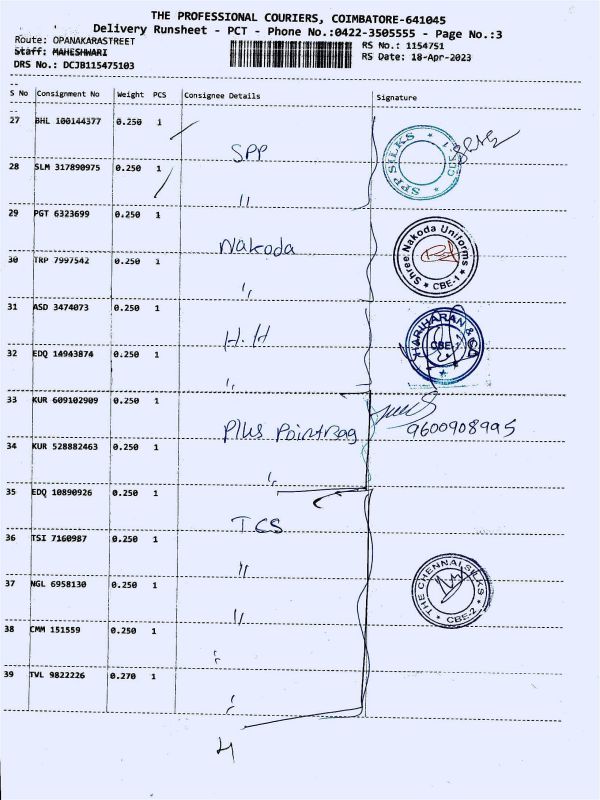 THE PROFESSIONAL COURIERS, COIMBATORE-641045
Delivery Runsheet - PCT - Phone No.:0422-3505555 - Page No.:3
Route: OPANAKARASTREET
RS No.: 1154751
Staff: MAHESHWARI
RS Date: 18-Apr-2023
DRS No.: DCJB115475103
S No Consignment No Weight PCS Consignee Details Signature
27 BHL 100144377 0.250 1
SPP
SPP SILKS * CBE-1 *
28 SLM 317890975 0.250 1
"
29 PGT 6323699 0.250 1
Nakoda
Shree Nakoda Uniforms * CBE-1 *
30 TRP 7997542 0.250 1
"
31 ASD 3474073 0.250 1
H.H
HARIHARAN & CO
CBE-1
32 EDQ 14943874 0.250 1
"
33 KUR 609102909 0.250 1
Plus PointBag
9600908995
34 KUR 528882463 0.250 1
"
35 EDQ 10890926 0.250 1
TCS
36 TSI 7160987 0.250 1
"
37 NGL 6958130 0.250 1
"
THE CHENNAI SILKS * CBE-2 *
38 CMM 151559 0.250 1
"
39 TVL 9822226 0.270 1
"